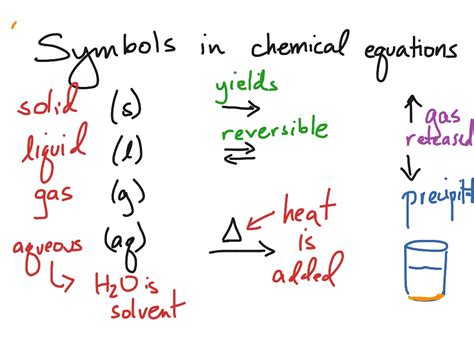 Symbols in chemical equations
solid (s)
liquid (l)
gas (g)
aqueous (aq)
↳ H₂O is
solvent
yields
→
reversible
⇌
Δ ← heat
is
added
→
↑ gas
released
↓
precipit